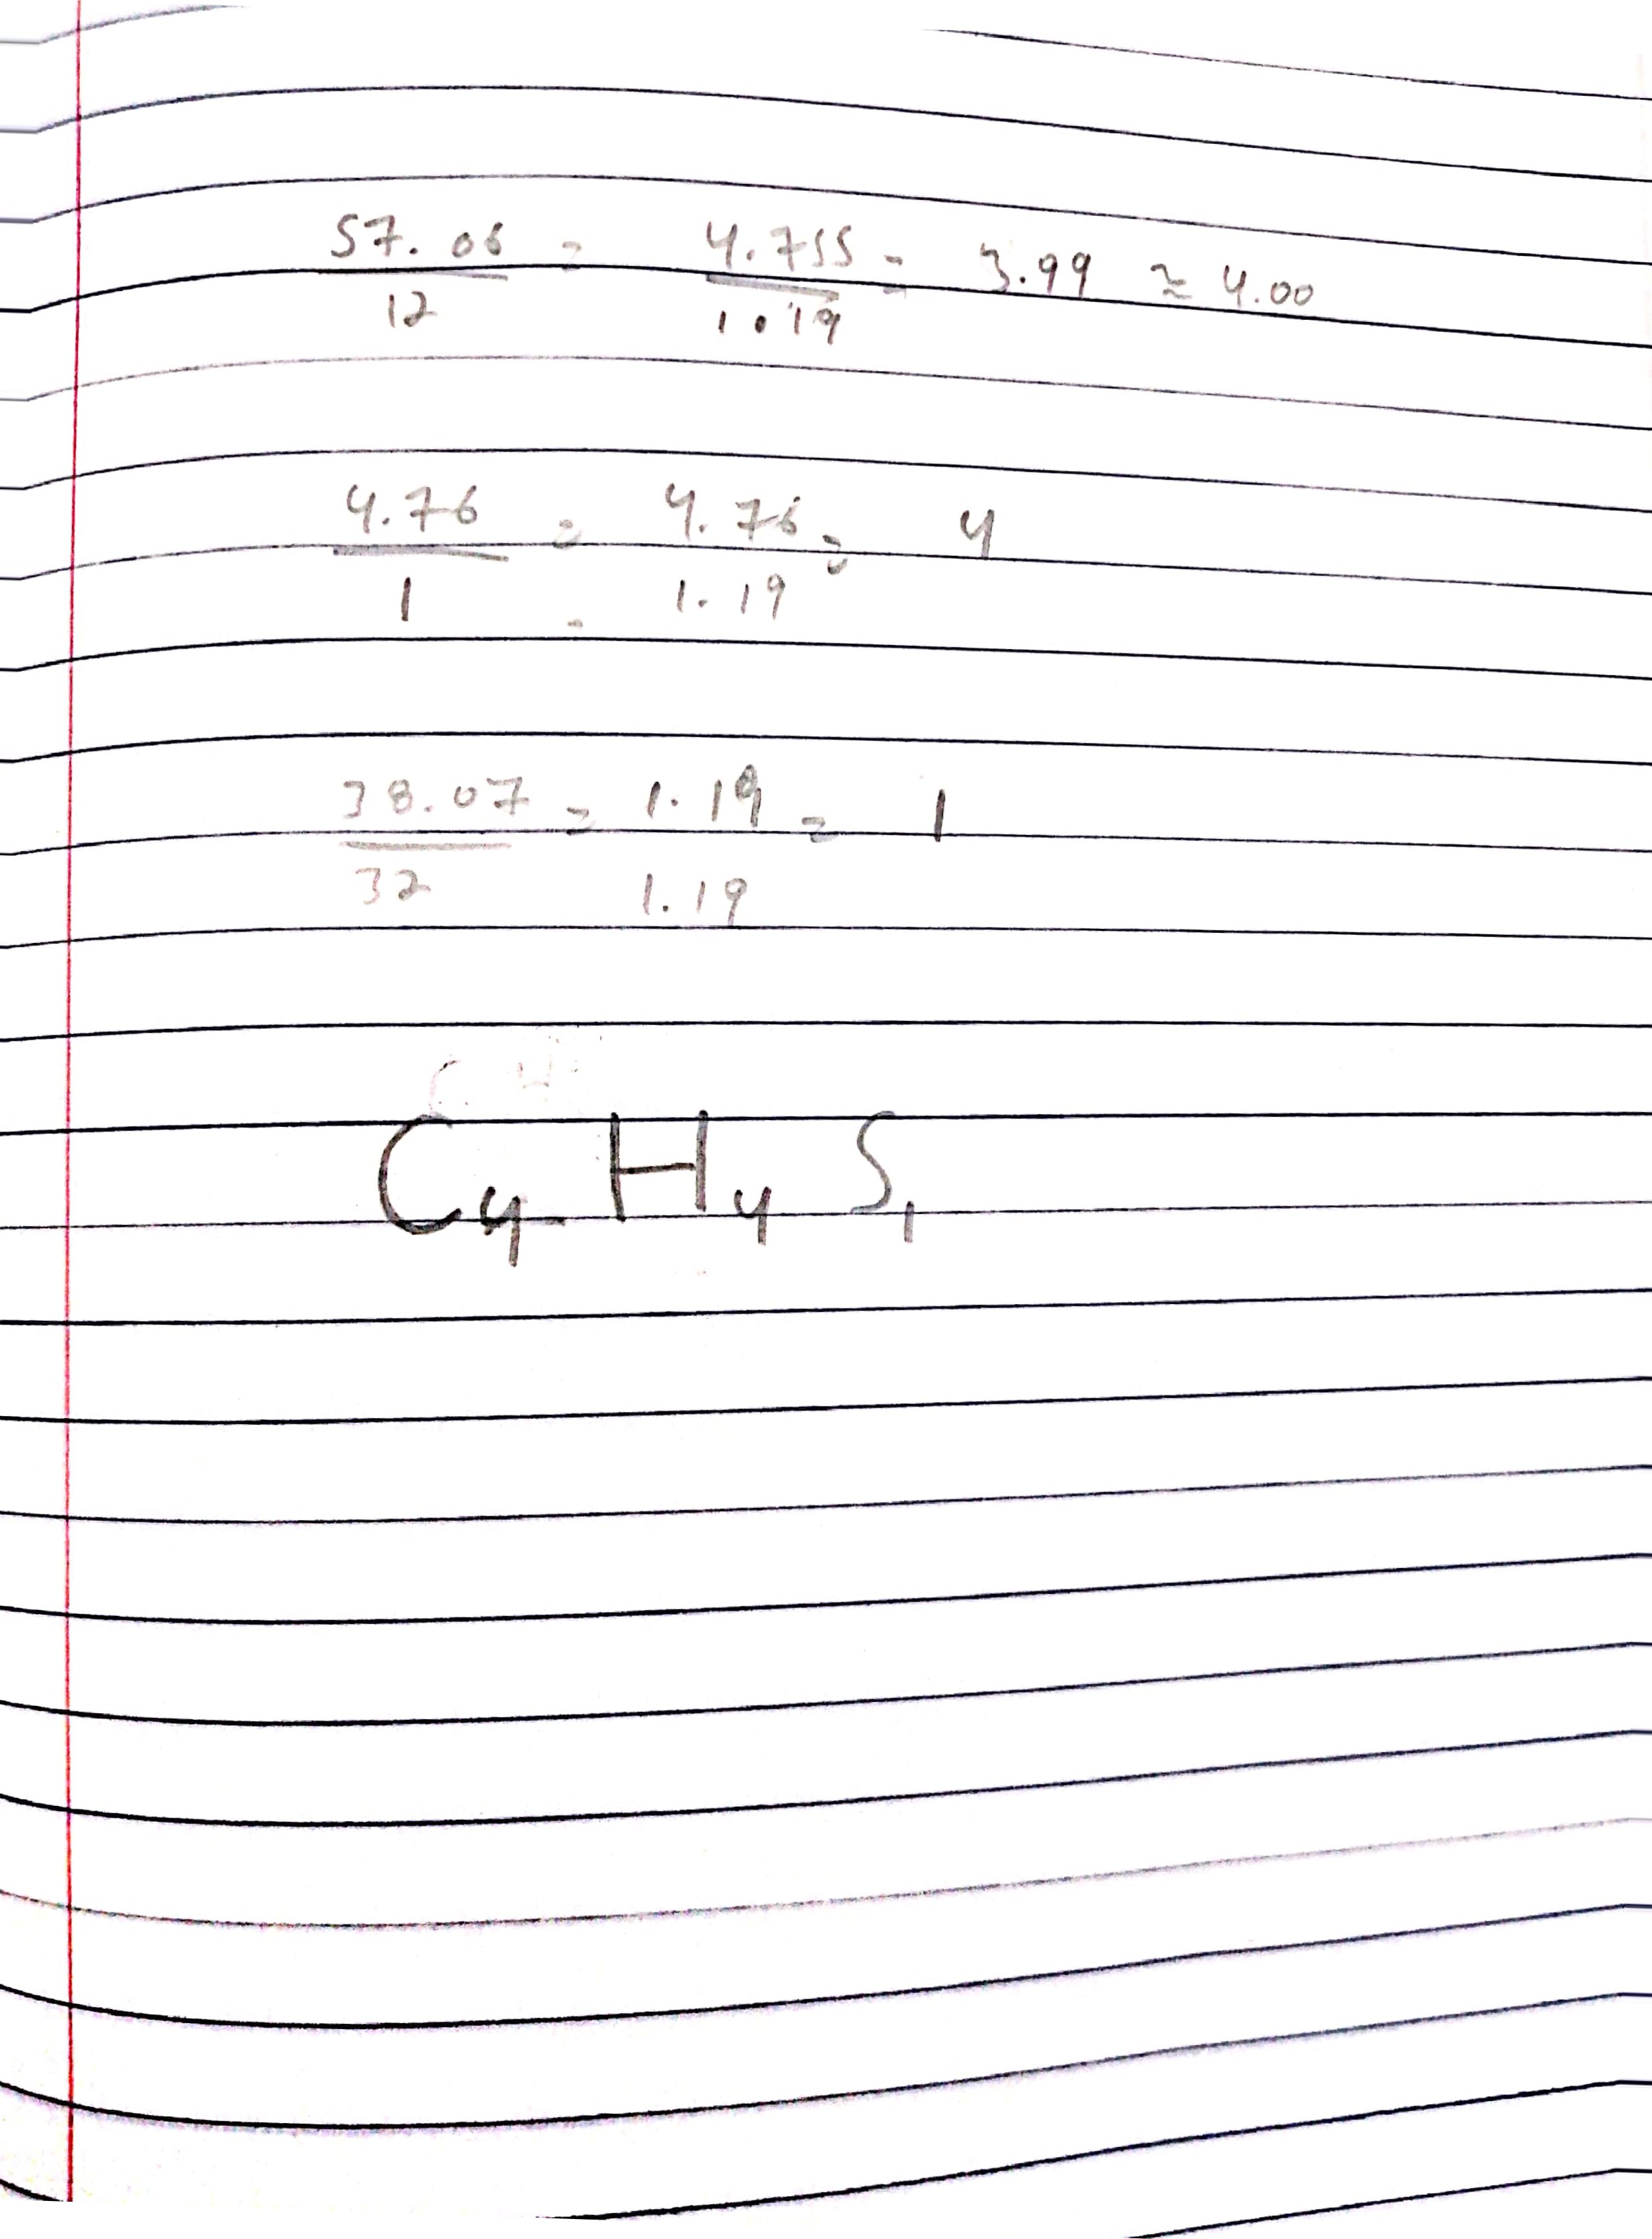 57.06 / 12 = 4.755 / 1.19 = 3.99 ≃ 4.00
4.76 / 1 = 4.76 / 1.19 = 4
38.07 / 32 = 1.19 / 1.19 = 1
C₄ H₄ S₁